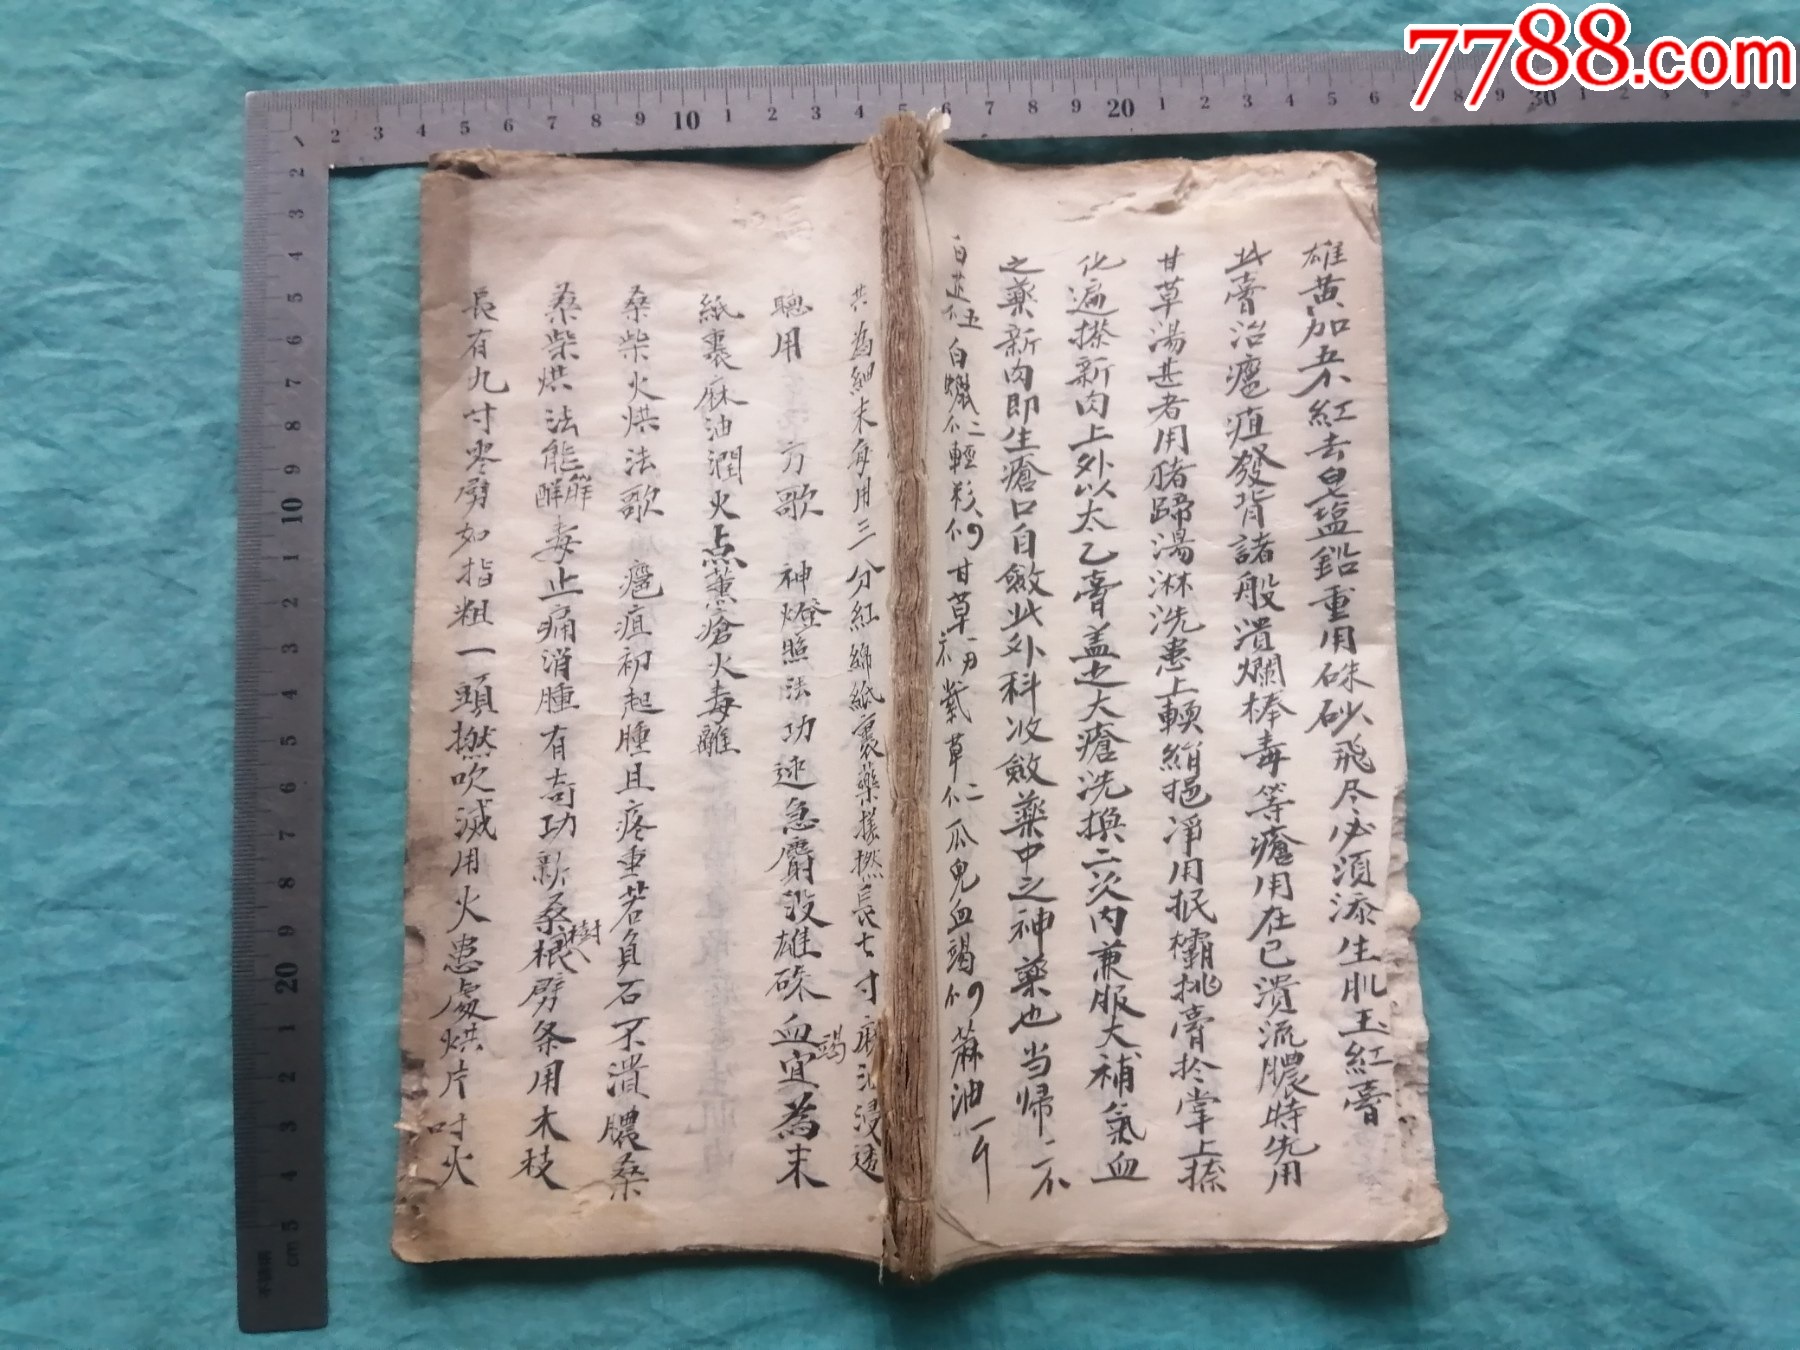 7788.com
雄黄加朱紅去皂塩鉛重用硃砂飛尽必須添生肌玉紅膏
此膏治癰疽發背諸般潰爛棒毒等瘡用在已潰流膿時先用
甘草湯甚者用豬蹄湯淋洗患上軟絹挹凈用抿欛挑膏扵掌上搽
化遍搽新肉上外以太乙膏盖之大瘡洗換二次内兼服大補氣血
之藥新肉即生瘡口自斂此外科收斂藥中之神藥也当帰二
白芷 白蠟 二 輕粉 甘草 紫草 二 瓜兒血竭 蔴油一斤
共為細末每用三分紅綿紙裹藥搓撚長七寸麻油浸透
聽用 方歌 神燈照法功速急麝没雄硃血竭宜為末
紙裹麻油潤火点薰瘡火毒離
桑柴火烘法歌 癰疽初起腫且疼重若負石不潰膿桑
桑柴烘法能解毒止痛消腫有奇功新桑樹根劈条用木枝
長有九寸零劈如指粗一頭撚吹滅用火患處烘片时火